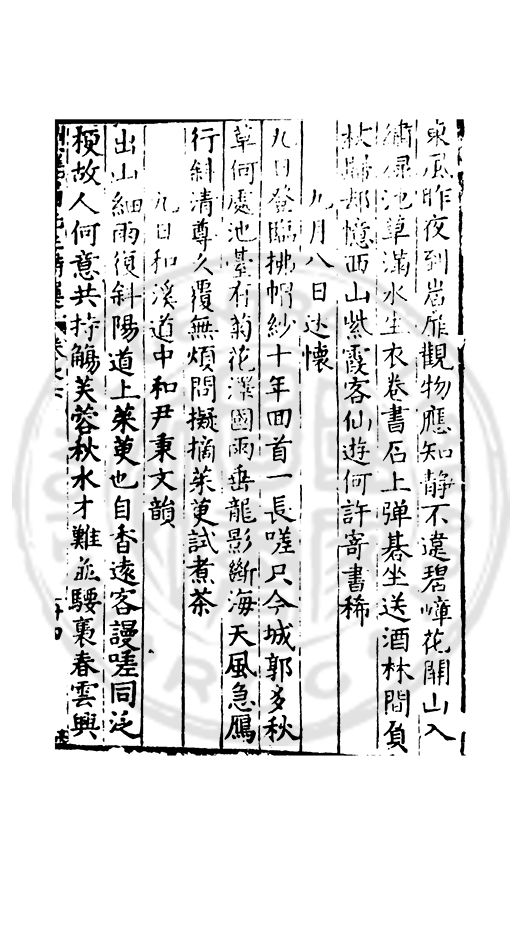 東風昨夜到岩扉觀物應知静不違碧嶂花開山入
繡綠池草滿水生衣卷書石上弹碁坐送酒林間負
杖歸却憶西山紫霞客仙遊何許寄書稀
九月八日述懷
九日登臨拂帽紗十年回首一長嗟只今城郭多秋
草何處池臺有菊花澤國雨垂龍影斷海天風急鴈
行斜清尊久覆無煩問擬摘茱萸試煮茶
九日和溪道中和尹秉文韻
出山細雨復斜陽道上茱萸也自香遠客謾嗟同泛
梗故人何意共持觴芙蓉秋水才難並騕褭春雲興